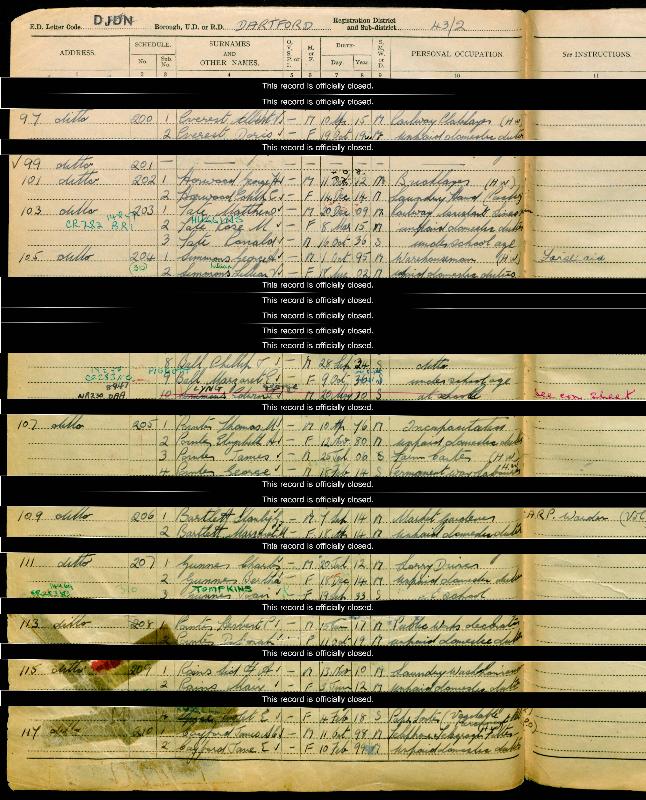 E.D. Letter Code DJDN Borough, U.D. or R.D. DARTFORD Registration District and Sub-district 43/2
ADDRESS. SCHEDULE. SURNAMES AND OTHER NAMES. O. V. S. P. or I. M. or F. BIRTH— S. M. W. or D. PERSONAL OCCUPATION. See INSTRUCTIONS.
No. Sub. No. Day Year
1 2 3 4 5 6 7 8 9 10 11
This record is officially closed.
This record is officially closed.
97 ditto 200 1 Everest M 10 Apr 15 M Railway Platelayer (HW)
2 Everest Doris F 19 Oct unpaid domestic duties
This record is officially closed.
√ 99 ditto 201 — — — —
101 ditto 202 1 Horwood George H – M 11 12 M Bricklayer (HW)
2 Horwood Edith E – F 14 Dec 14 M Laundry Hand
103 ditto 203 1 Tate Matthew – M 20 Dec 09 M Railway Assistant
CR283 BR1 HUGGINS
2 Tate Rose M – F 8 Mar 15 M unpaid domestic duties
3 Tate Ronald – M 16 Oct 36 S under school age
105 ditto 204 1 Simmons George H – M 1 Oct 95 M Warehouseman (HW)
(30) 2 Simmons Lilian V – F 18 02 M unpaid domestic duties
This record is officially closed.
This record is officially closed.
This record is officially closed.
This record is officially closed.
This record is officially closed.
8 Ball Phillip J – M 28 Sep 34 S ditto
9 Ball Margaret – F 9 Oct S under school age
LYNG
NR230 DAA 10 M 20 30 S at school See con. Sheet
This record is officially closed.
107 ditto 205 1 Painter Thomas W – M 10 Apr 76 M Incapacitated
2 Painter Elizabeth H – F 12 Nov 80 M unpaid domestic duties
3 Painter James – M 25 Feb 06 S Farm Carter (HW)
4 Painter George – M 18 Feb 14 S Permanent way Labourer HW
This record is officially closed.
This record is officially closed.
109 ditto 206 1 Bartlett Stanley – M 7 Sep 14 M Market gardener A.R.P. Warden (VOL
2 Bartlett Margaret – F 18 14 M unpaid domestic duties
This record is officially closed.
111 ditto 207 1 Gunner Charles – M 20 12 M Lorry Driver
2 Gunner Bertha – F 18 Dec 14 M unpaid domestic duties
TOMPKINS
3 Gunner Jean F 19 Sep 33 S at school
This record is officially closed.
113 ditto 208 1 Painter Herbert – M 17 M Public Works
2 Painter Deborah – F 11 Oct 19 M unpaid domestic duties
This record is officially closed.
115 ditto 209 1 Rains – M 13 Nov 10 M Laundry Washhouseman
2 Rains Mary – F 3 Jan 12 M unpaid domestic duties
This record is officially closed.
– F 14 Feb 18 S Paper Sorter (Vegetable
117 ditto 210 1 Gayford James – M 11 Oct 98 M Telephone & Telegraph
2 Gayford Jane E – F 10 Feb 99 M unpaid domestic duties